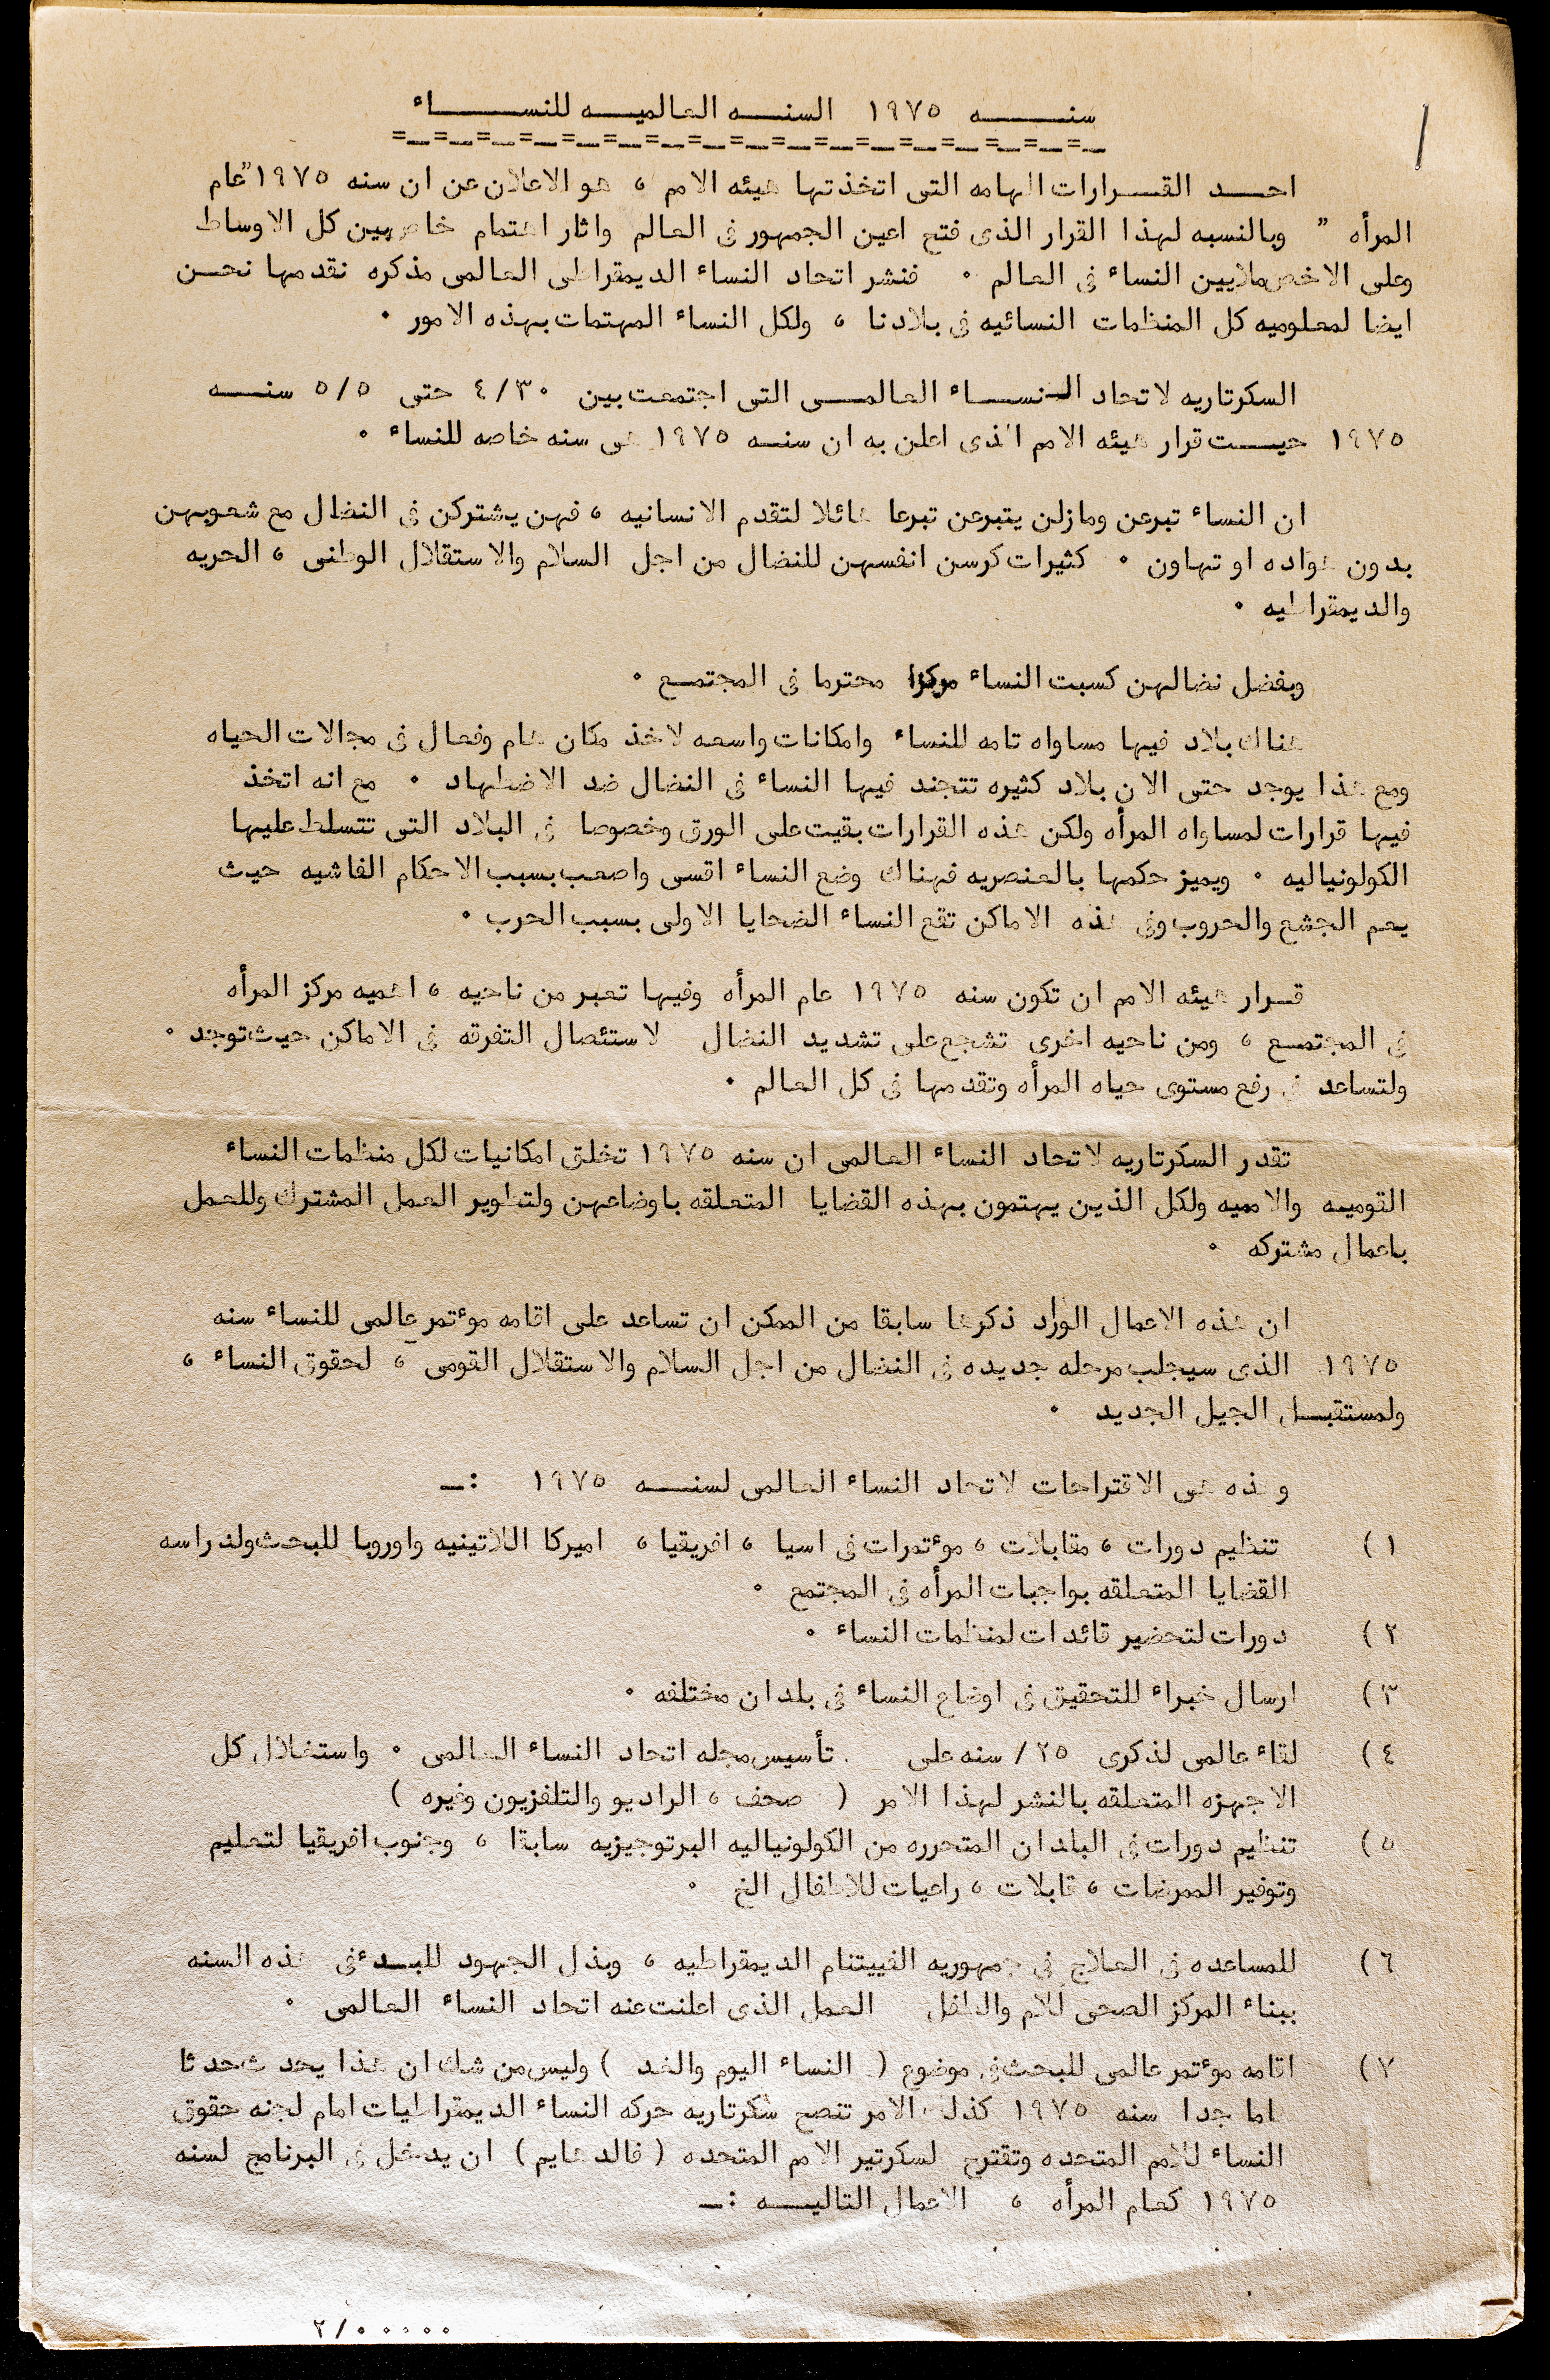 سنـــــه ١٩٧٥ السنـــه العالميـــه للنســـــاء
=ــ=ــ=ــ=ــ=ــ=ــ=ــ=ــ=ــ=ــ=ــ=ــ=ــ=ــ=ــ=ــ=ــ
احــد القــرارات الهامه التى اتخذتها هيئه الامم ، هو الاعلان عن ان سنه ١٩٧٥ "عام
المرأه " وبالنسبه لهذا القرار الذى فتح اعين الجمهور فى العالم واثار اهتمام خاص بين كل الاوساط
وعلى الاخص ملايين النساء فى العالم ٠ فنشر اتحاد النساء الديمقراطى العالمى مذكره نقدمها نحــن
ايضا لمعلوميه كل المنظمات النسائيه فى بلادنا ، ولكل النساء المهتمات بهذه الامور ٠
السكرتاريه لاتحاد النســاء العالمــى التى اجتمعت بين ٤/٣٠ حتى ٥/٥ سنــه
١٩٧٥ حيــت قرار هيئه الامم الذى اعلن به ان سنــه ١٩٧٥ هى سنه خاصه للنساء ٠
ان النساء تبرعن ومازلن يتبرعن تبرعا هائلا لتقدم الانسانيه ، فهن يشتركن فى النضال مع شعوبهن
بدون هواده او تهاون ٠ كثيرات كرسن انفسهن للنضال من اجل السلام والاستقلال الوطنى ، الحريه
والديمقراطيه ٠
وبفضل نضالهن كسبت النساء مركزا محترما فى المجتمــع ٠
هناك بلاد فيها مساواه تامه للنساء وامكانات واسعه لاخذ مكان هام وفعال فى مجالات الحياه
ومع هذا يوجد حتى الان بلاد كثيره تتجند فيها النساء فى النضال ضد الاضطهاد ٠ مع انه اتخذ
فيها قرارات لمساواه المرأه ولكن هذه القرارات بقيت على الورق وخصوصا فى البلاد التى تتسلط عليها
الكولونياليه ٠ ويميز حكمها بالعنصريه فهناك وضع النساء اقسى واصعب بسبب الاحكام الفاشيه حيث
يعم الجشع والحروب وفى هذه الاماكن تقع النساء الضحايا الاولى بسبب الحرب ٠
قــرار هيئه الامم ان تكون سنه ١٩٧٥ عام المرأه وفيها تعبر من ناحيه ، اهميه مركز المرأه
فى المجتمــع ، ومن ناحيه اخرى تشجع على تشديد النضال لاستئصال التفرقه فى الاماكن حيث توجد ٠
ولتساعد فى رفع مستوى حياه المرأه وتقدمها فى كل العالم ٠
تقدر السكرتاريه لاتحاد النساء العالمى ان سنه ١٩٧٥ تخلق امكانيات لكل منظمات النساء
القوميــه والامميه ولكل الذين يهتمون بهذه القضايا المتعلقه باوضاعهن ولتطوير العمل المشترك وللعمل
باعمال مشتركه ٠
ان هذه الاعمال الوارد ذكرها سابقا من الممكن ان تساعد على اقامه مؤتمر عالمى للنساء سنه
١٩٧٥ الذى سيجلب مرحله جديده فى النضال من اجل السلام والاستقلال القومى ، لحقوق النساء ،
ولمستقبــل الجيل الجديد ٠
وهذه هى الاقتراحات لاتحاد النساء العالمى لسنـــه ١٩٧٥ :ــ
١) تنظيم دورات ، مقابلات ، مؤتمرات فى اسيا ، افريقيا ، اميركا اللاتينيه واوروبا للبحث ولدراسه
القضايا المتعلقه بواجبات المرأه فى المجتمع ٠
٢) دورات لتحضير قائدات لمنظمات النساء ٠
٣) ارسال خبراء للتحقيق فى اوضاع النساء فى بلدان مختلفه ٠
٤) لقاء عالمى لذكرى ٢٥/ سنه على تأسيس مجله اتحاد النساء العالمى ٠ واستغلال كل
الاجهزه المتعلقه بالنشر لهذا الامر ( صحف ، الراديو والتلفزيون وغيره )
٥) تنظيم دورات فى البلدان المتحرره من الكولونياليه البرتوجيزيه سابقا ، وجنوب افريقيا لتعليم
وتوفير الممرضات ، قابلات ، راعيات للاطفال الخ ٠
٦) للمساعده فى العلاج فى جمهوريه الفييتنام الديمقراطيه ، وبذل الجهود للبــدء فى هذه السنه
ببناء المركز الصحى للام والطفل العمل الذى اعلنت عنه اتحاد النساء العالمى ٠
٧) اقامه مؤتمر عالمى للبحث فى موضوع ( النساء اليوم والغد ) وليس من شك ان هذا يحدث حدثا
هاما جدا سنه ١٩٧٥ كذلك الامر تنصح سكرتاريه حركه النساء الديمقراطيات امام لجنه حقوق
النساء للامم المتحده وتقترح لسكرتير الامم المتحده ( فالدهايم ) ان يدخل فى البرنامج لسنه
١٩٧٥ كعام المرأه ، الاعمال التاليــه :ــ
٢/٠٠٠٠٠٠